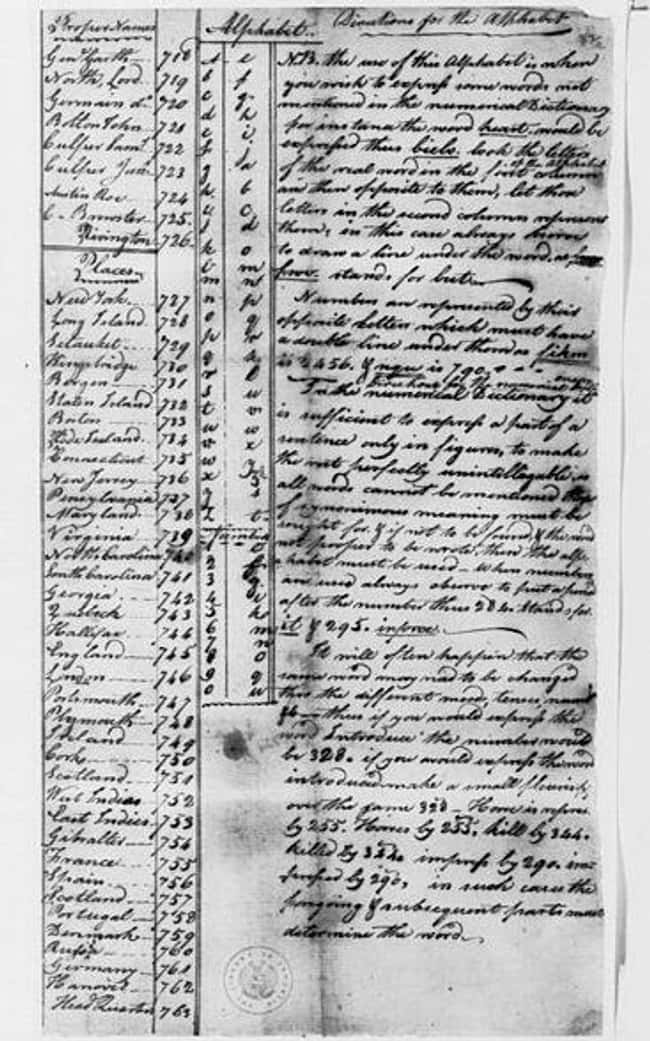 Proper Names
Gen Garth 718
North Lord 719
Germain do 720
Bolton John 721
Culper Saml 722
Culper Junr 723
Austin Roe 724
C- Brewster 725
Rivington 726
Places
New York 727
Long Island 728
Setauket 729
Kingsbridge 730
Bergen 731
Staten Island 732
Boston 733
Rode Iseland 734
Connecticut 735
New Jersey 736
Pensylvania 737
Maryland 738
Virginia 739
North Carolina 740
South Carolina 741
Georgia 742
Quebeck 743
Hallifax 744
England 745
London 746
Portsmouth 747
Plymouth 748
Ireland 749
Cork 750
Scotland 751
West Indies 752
East Indies 753
Gibralter 754
France 755
Spain 756
Scotland 757
Portugal 758
Denmark 759
Russia 760
Germany 761
Hanover 762
Head Quarters 763
Alphabet
a e
b f
c g
d h
e i
f j
g a
h b
i c
j d
k o
l m
m n
n p
o q
p r
q k
r l
s u
t v
u w
v x
w y
x z
y s
z t
Numbers
1 e
2 f
3 g
4 i
5 k
6 m
7 n
8 o
9 q
0 u
Directions for the Alphabet
N.B. the use of this Alphabet is when
you wish to express some words not
mentioned in the numerical Dictionary
for instance the word heart. would be
expressed thus biels. look the letters
of the real word in the first column of the Alphabet
and then opposite to them, let those
letters in the second column represent
them, in this case always observe
to draw a line under the word, as
fwv. stands for but
Numbers are represented by their
opposite letters which must have
a double line under them as fikm
is 2456. & nqu is 790.
Directions for the numerical
In the numerical Dictionary it
is sufficient to express a part of a
sentence only in figures, to make
the rest perfectly unintellagable, as
all words cannot be mentioned those
of synonimous meaning must be
sought for. & if not to be found, & the word
not proper to be wrote, then the alp-
habet must be used - When numbers
are used always observe to put a period
after the number thus 284. stands for
it & 295. inforce.
It will often happen that the
same word may nad to be changed
thro the different moods, tenses, numbers
thus if you would express the
word Introduce the number would
be 328. if you would express the word
introduced make a small flourish
over the same 328 - Horse is repres.
by 255. Horses by 255, kill by 344.
killed by 344. impress by 290. im-
pressed by 290, in such cases the
forgoing & subsequent parts must
determine the word